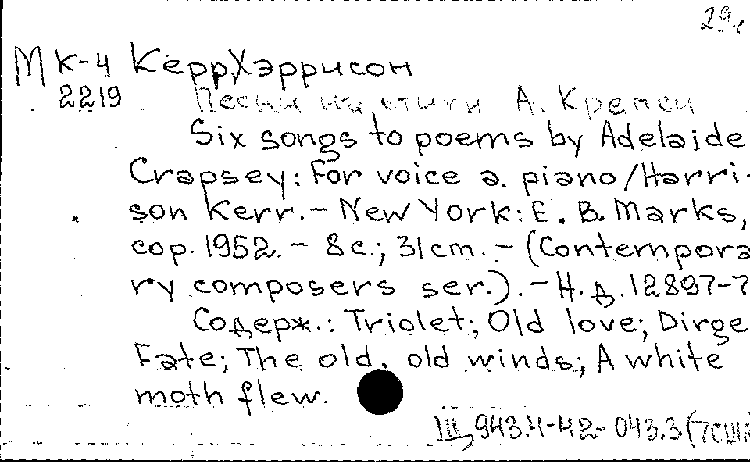 29.
МК-4 Керр, Хэррисон
2219 Песни на стихи А. Крепси
Six songs to poems by Adelaide
Crapsey: For voice a. piano/Harri-
son Kerr. – New York: E. B. Marks,
cop. 1952. – 8с.; 31cm. – (Contempora
ry composers ser.). – Н.д. 12897-7
Содерж.: Triolet; Old love; Dirge
Fate; The old, old winds; A white
moth flew.
Щ943.4-42-043.3(7США